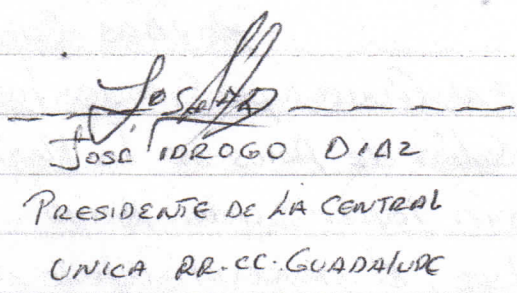 José IDROGO DIAZ
PRESIDENTE DE LA CENTRAL
UNICA RR.CC. GUADALUPE